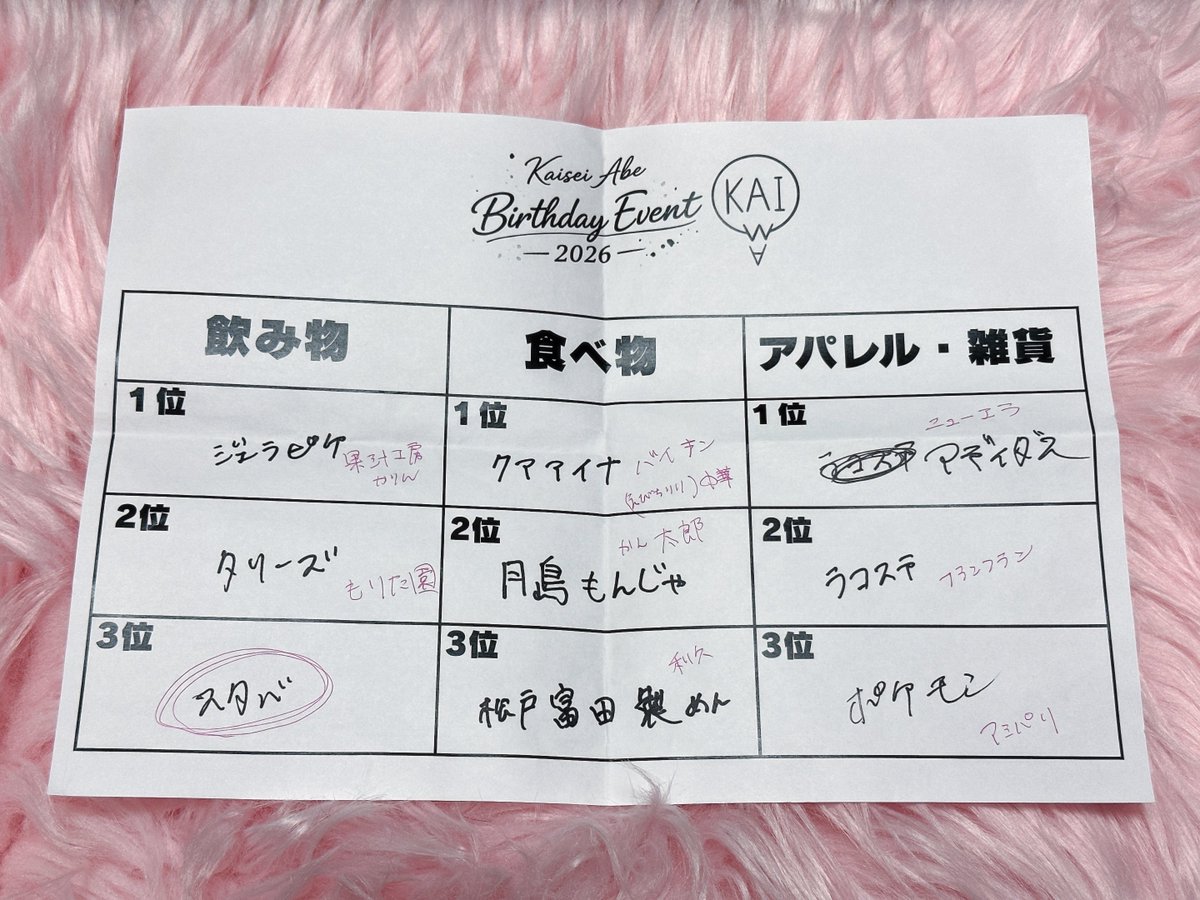 Kaisei Abe
Birthday Event
2026
KAI
W
A
飲み物
食べ物
アパレル・雑貨
1位
ジェラピケ
果汁工房
かりん
1位
クアアイナ
バイキング
中華
1位
ニューエラ
ラコステ アディダス
2位
タリーズ
もりた園
2位
かん太郎
月島もんじゃ
2位
ラコステ
フランフラン
3位
スタバ
3位
利久
松戸富田製めん
3位
ポケモン
アミパリ